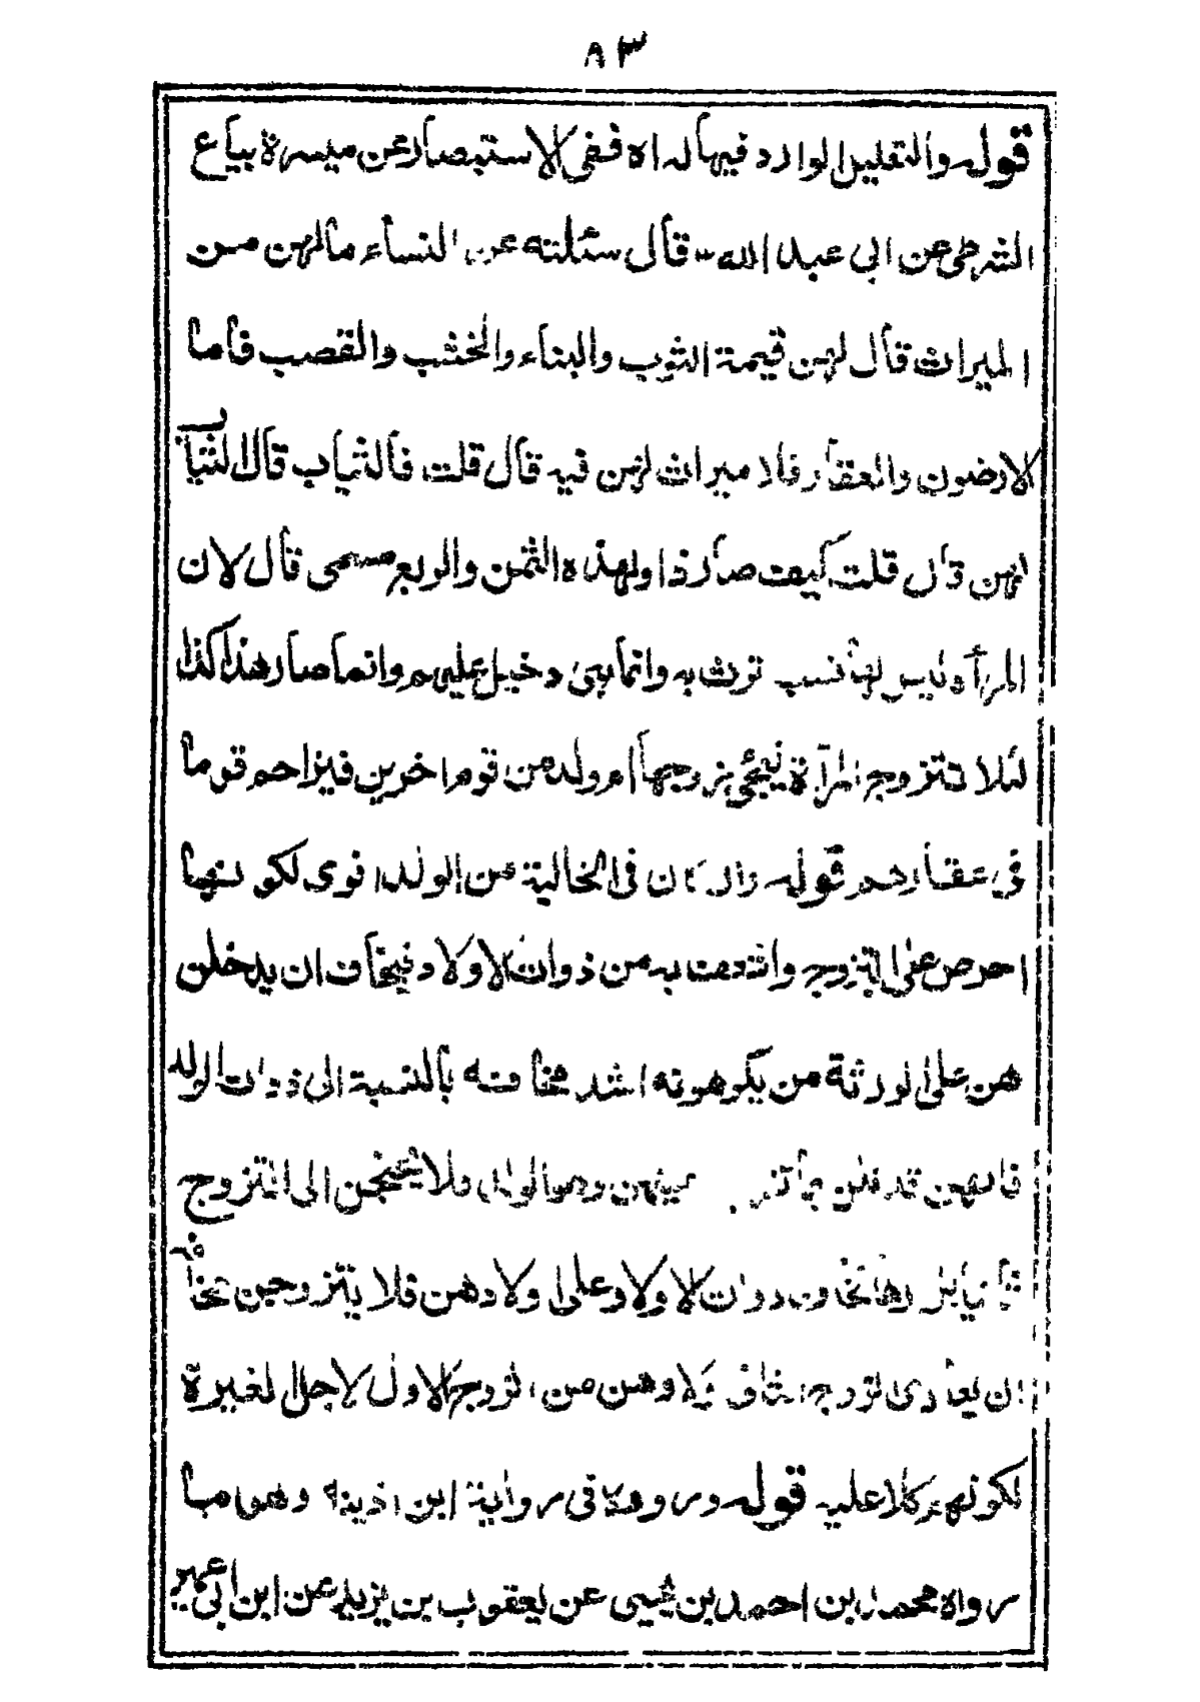 ٨٣
قوله والتعليل الوارد فيها له اه ففى الاستبصار عن ميسرة بياع
الشرطى عن ابى عبد الله قال سئلته عن النساء ما لهن من
الميراث قال لهن قيمة الثوب والبناء والخشب والقصب فاما
الارضون والعقار فلا ميراث لهن فيه قال قلت فالثياب قال الثياب
لهن قال قلت كيف صار ذا ولهذه الثمن والربع مسمى قال لان
المرأة ليس لها نسب ترث به وانما هى دخيل عليهم وانما صار هذا كذا
لئلا تتزوج المرآة فيجئ زوجها او ولد من قوم اخرين فيزاحم قوما
فى عقارهم قوله وان كان فى الخالية من الولد اقوى لكونها
احرص على التزوج وانتفت به من ذوات الاولاد فيخاف ان يدخلن
هن على الورثة من يكرهونه اشد مخافته بالنسبة الى ذوات الولد
فانهن قد بينهن وهو الولد فلا يحتجن الى التزوج
ثانيا بل ذوات الاولاد على اولادهن فلا يتزوجن مخافة
ان يعادى الزوج الثانى اولادهن من الزوج الاول لاجل الغيرة
لكونهم كلا عليه قوله وروده فى رواية ابن اذينه وهو ما
رواه محمد بن احمد بن يحيى عن يعقوب بن يزيد عن ابن ابى عمير